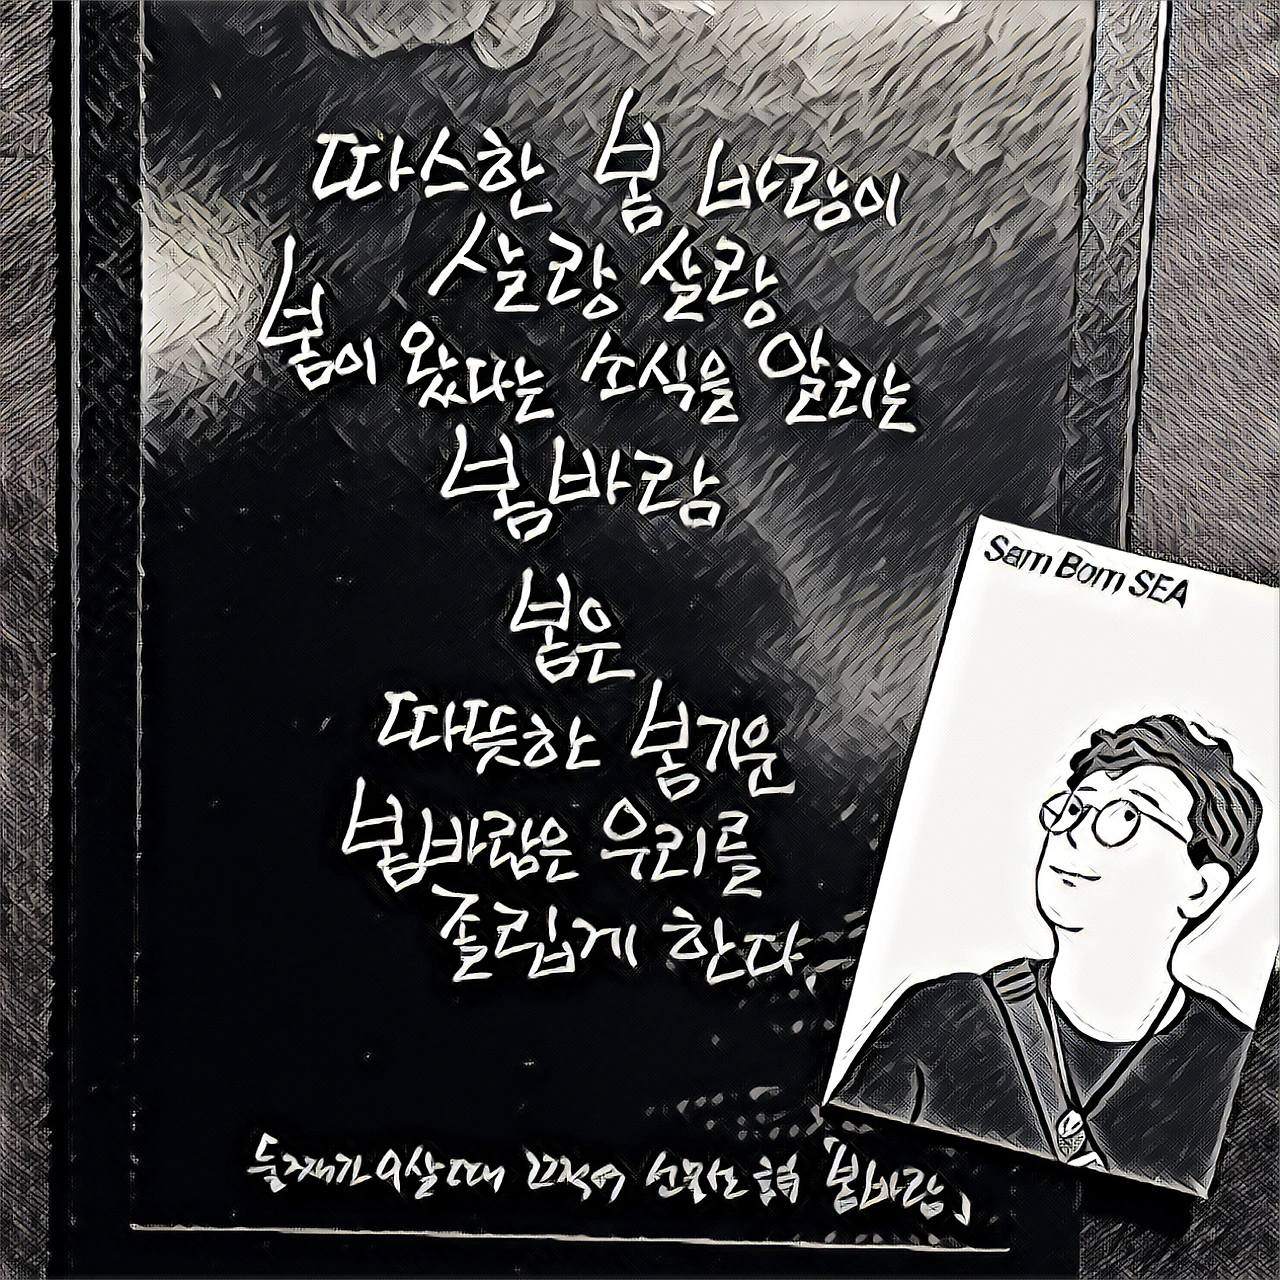 따스한 봄 바람이
살랑 살랑
봄이 왔다는 소식을 알리는
봄바람
봄은
따뜻한 봄기운
봄바람은 우리를
졸립게 한다.
Sam Bom SEA
둘째가 9살 때 끄적여 선물한 「봄바람」